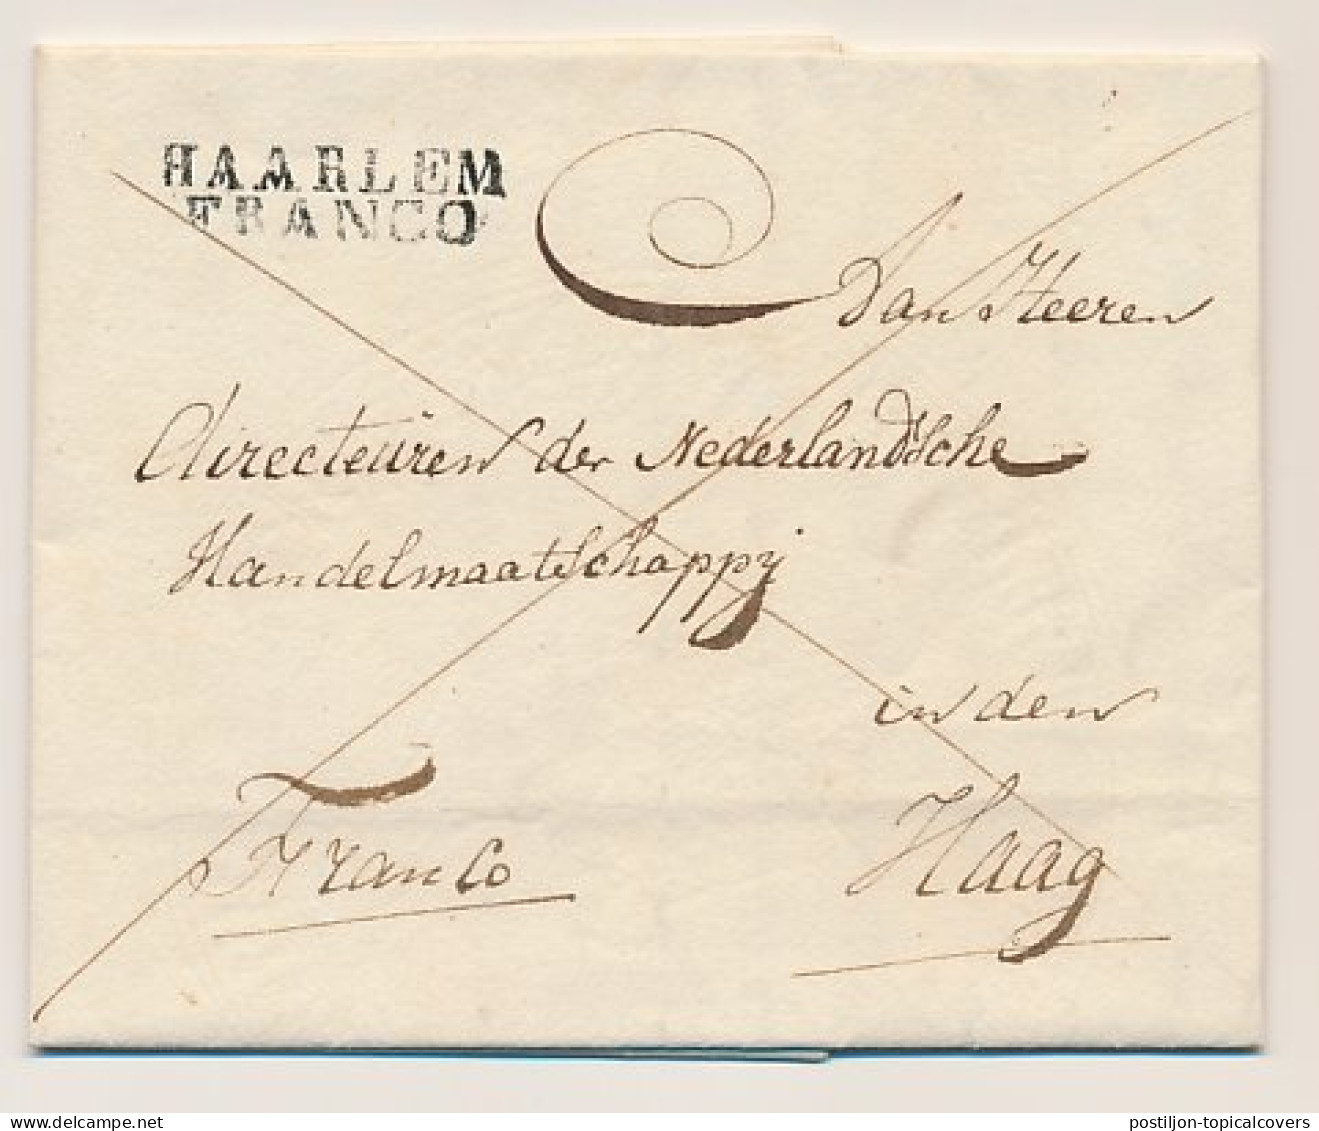 HAARLEM
FRANCO
Aan Heeren
Directeuren der Nederlandsche
Handelmaatschappij
in den
Franco
Haag
delcampe.net
postiljon-topicalcovers